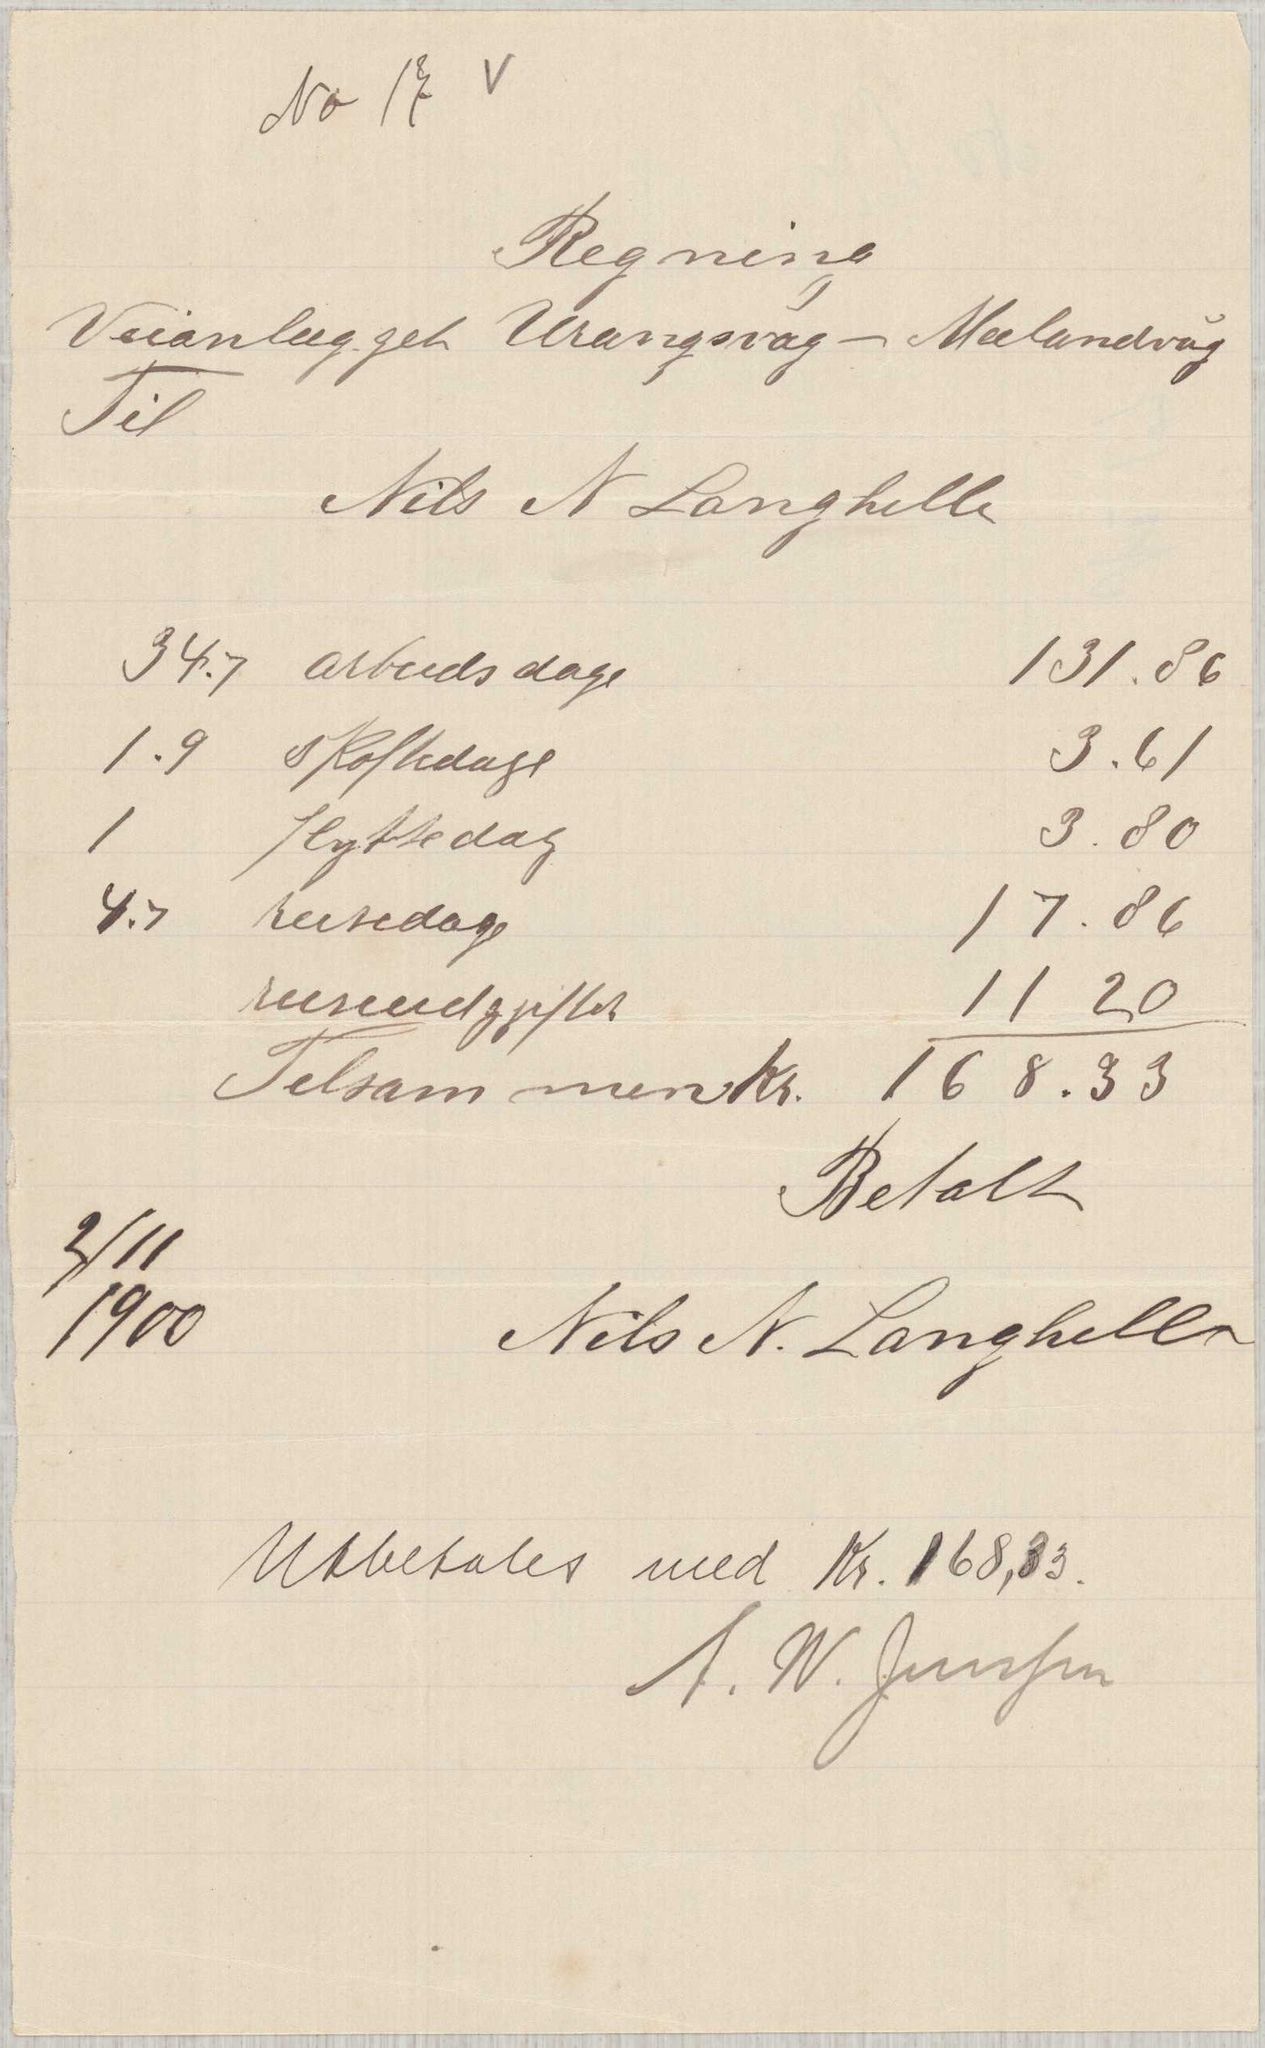 No 18 V
Regning
Veianlægget Urangsvåg – Mælandvåg
Til
Nils N Langhelle
34.7 arbeidsdage 131.86
1.9 skoftedage 3.61
1 flyttedag 3.80
4.7 reisedage 17.86
reiseudgifter 11 20
Telsammen Kr. 168.33
Betalt
2/11
1900
Nils N. Langhelle
Utbetales med Kr. 168,33.
A. W. Jenssen